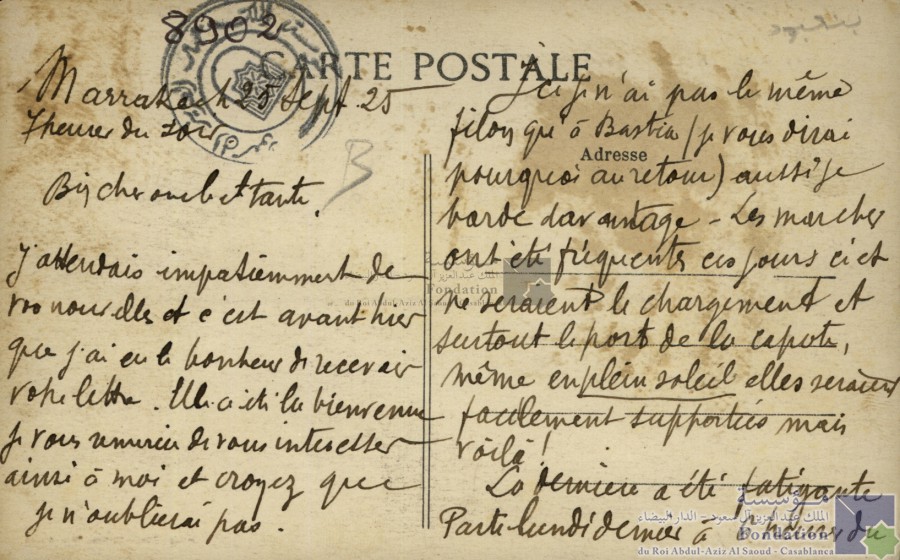 8902
CARTE POSTALE
Marrakech 25 Sept. 25
7 heures du soir
B
Bien cher oncle et tante,
J'attendais impatiemment de
vos nouvelles et c'est avant hier
que j'ai eu le bonheur de recevoir
votre lettre. Elle a été la bienvenue
Je vous remercie de vous intéresser
ainsi à moi et croyez que
je n'oublierai pas.
Ici je n'ai pas le même
filon qu'à Bastia (je vous dirai
Adresse
pourquoi au retour) aussi je
barde davantage - Les marches
ont été fréquentes ces jours ci et
ne seraient le chargement et
surtout le port de la capote,
même en plein soleil elles seraient
facilement supportées mais
voilà!
La dernière a été fatigante
Parti lundi dernier à heures du
الملك عبد العزيز
Fondation
du Roi Abdul-Aziz Al Saoud
مؤسسة
الملك عبد العزيز آل سعود - الدار البيضاء
Fondation
du Roi Abdul-Aziz Al Saoud - Casablanca